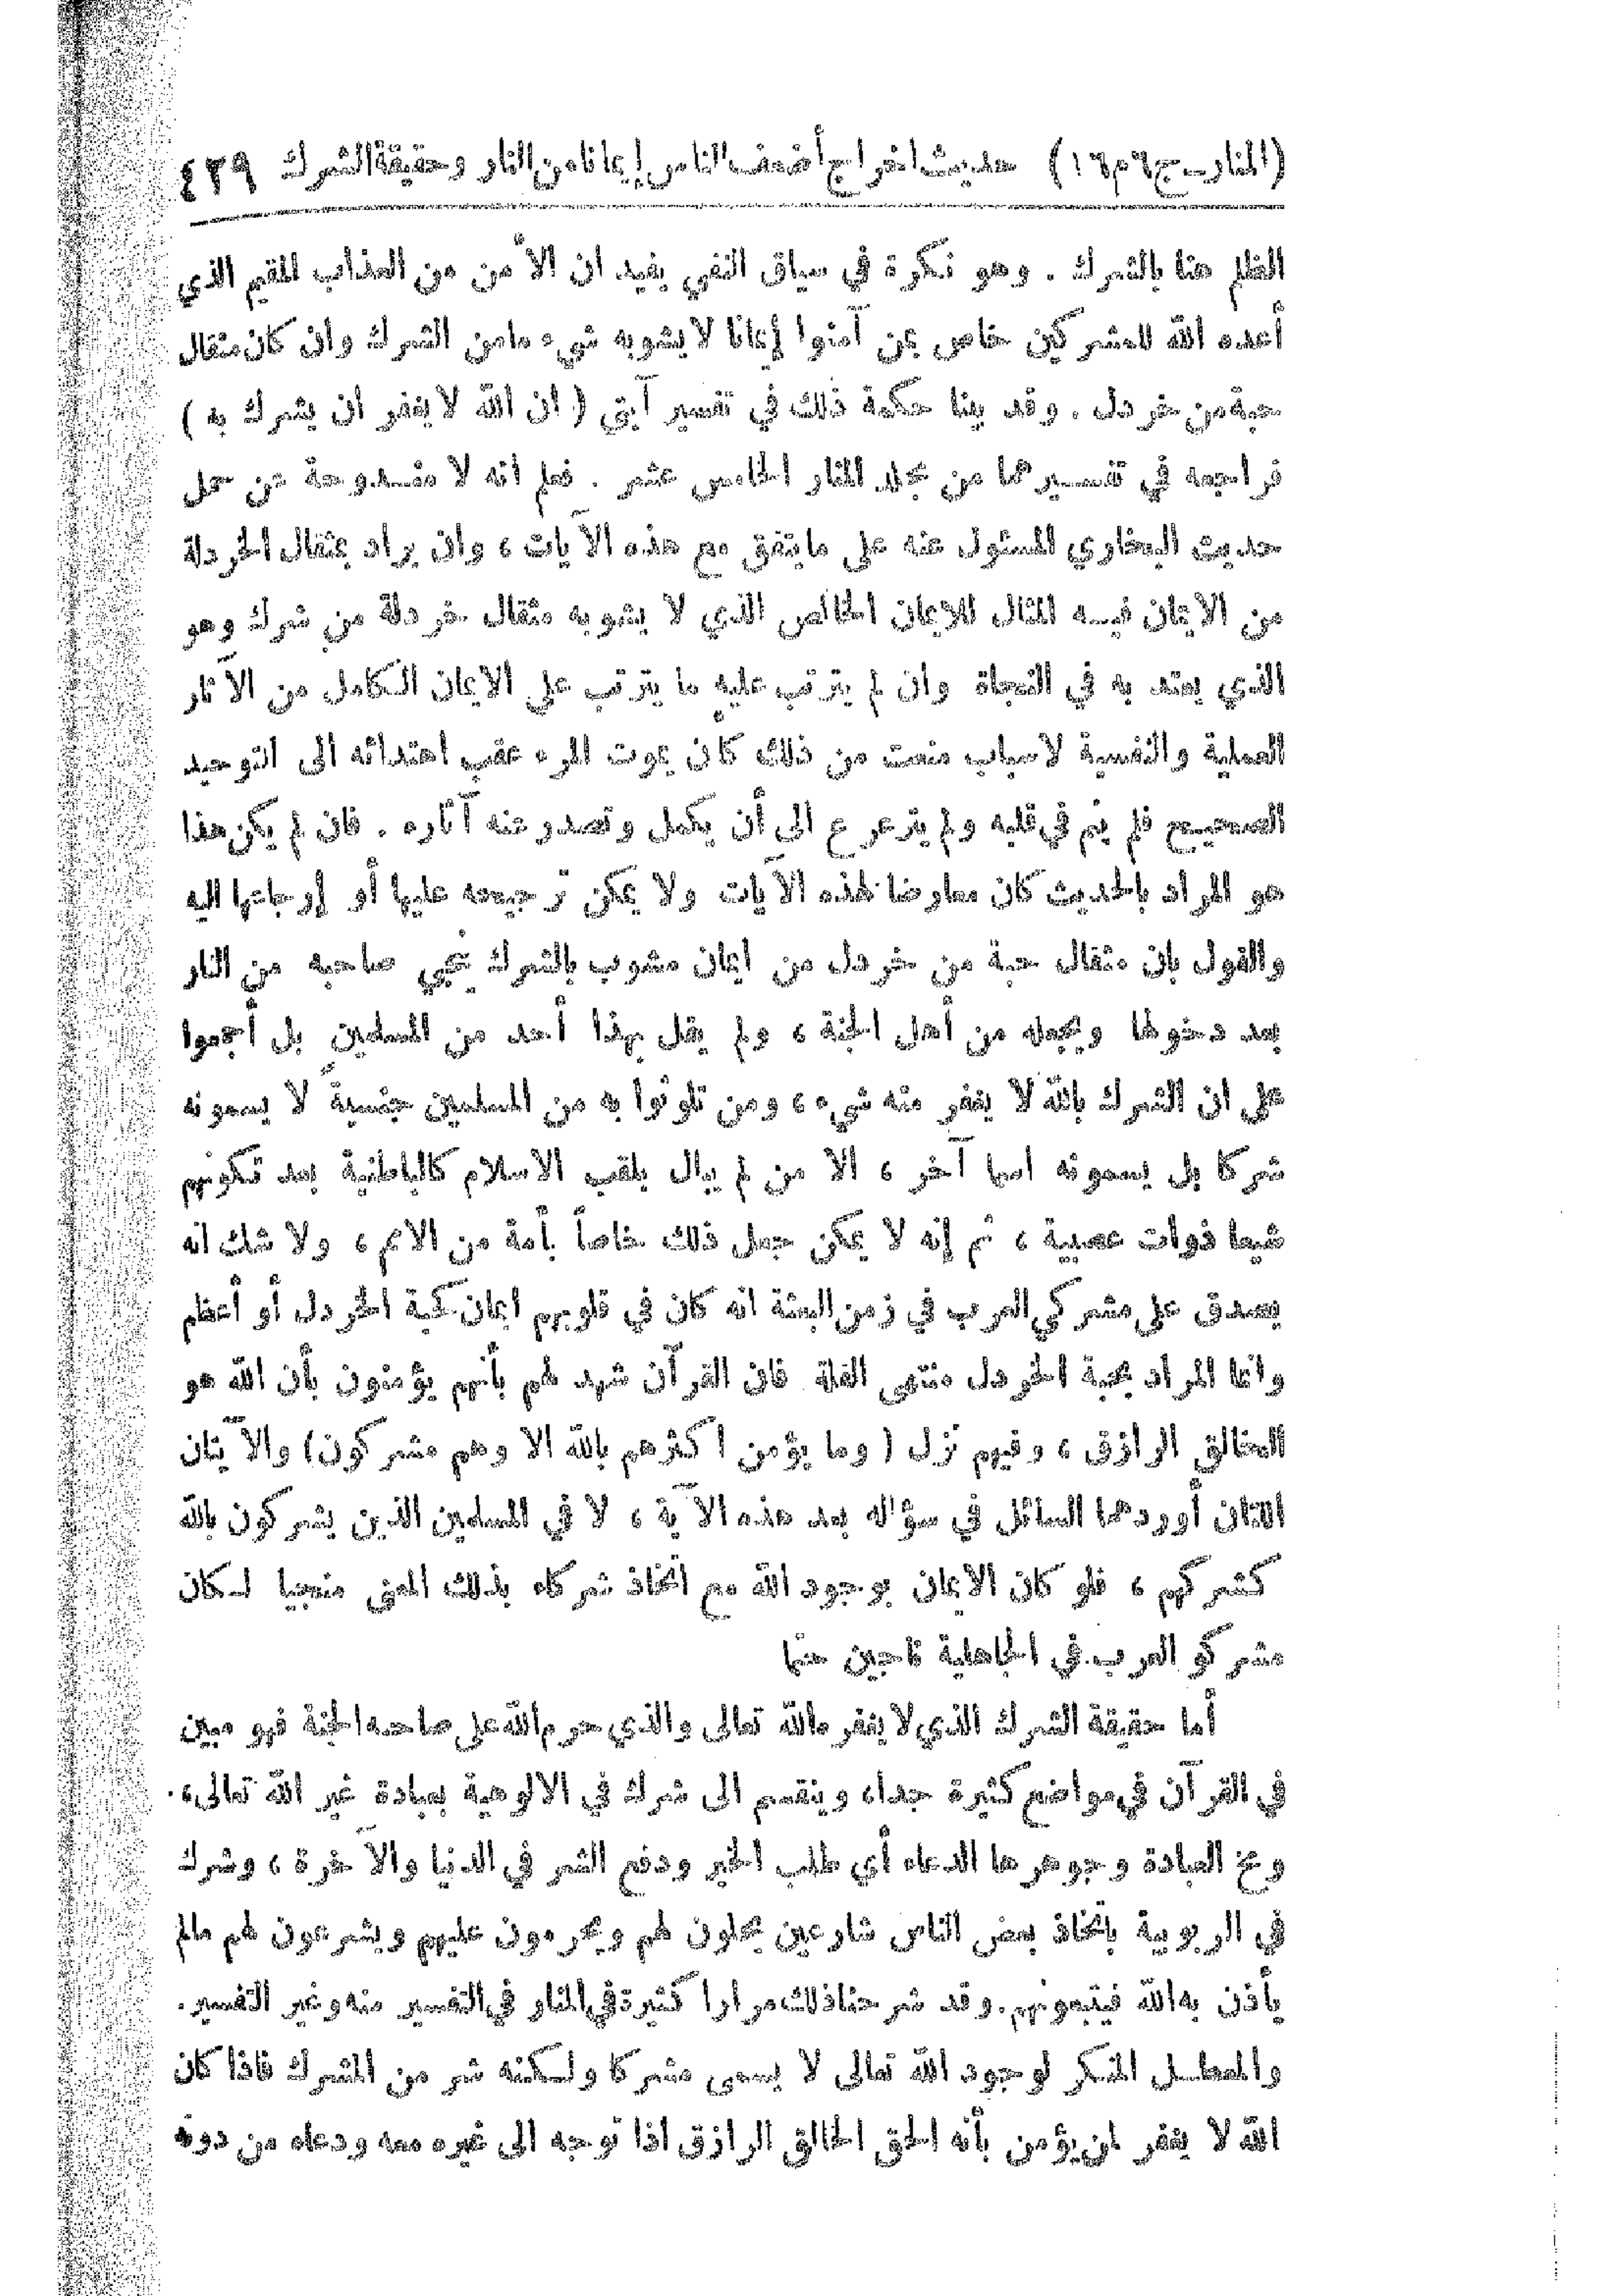 (المنار ـ ج ٦ م ١٦) حديث اخراج أضعف الناس إيمانا من النار وحقيقة الشرك ٤٣٩
الظلم هنا بالشرك . وهو نكرة في سياق النفي يفيد ان الأمن من العذاب المقيم الذي
أعده الله للمشركين خاص بمن آمنوا إيمانا لا يشوبه شيء ما من الشرك وان كان مثقال
حبة من خردل . وقد بينا حكمة ذلك في تفسير آيتي ( ان الله لا يغفر ان يشرك به )
فراجعه في تفسيرهما من مجلد المنار الخامس عشر . فعلم انه لا مندوحة عن حمل
حديث البخاري المسئول عنه على ما يتفق مع هذه الآيات ، وان يراد بمثقال الخردلة
من الايمان فيه المثال للايمان الخالص الذي لا يشوبه مثقال خردلة من شرك وهو
الذي يعتد به في النجاة وان لم يترتب عليه ما يترتب على الايمان الكامل من الآثار
العملية والنفسية لاسباب منعت من ذلك كأن يموت المرء عقب اهتدائه الى التوحيد
الصحيح فلم ينم في قلبه ولم يترعرع الى أن يكمل وتصدر عنه آثاره . فان لم يكن هذا
هو المراد بالحديث كان معارضا لهذه الآيات ولا يمكن ترجيحه عليها أو إرجاعها اليه
والقول بان مثقال حبة من خردل من ايمان مشوب بالشرك ينجي صاحبه من النار
بعد دخولها ويجعله من أهل الجنة ، ولم يقل بهذا أحد من المسلمين بل أجمعوا
على ان الشرك بالله لا يغفر منه شيء ، ومن تلوثوا به من المسلمين جنسيةً لا يسمونه
شركا بل يسمونه اسما آخر ، الا من لم يبال بلقب الاسلام كالباطنية بعد تكونهم
شيعا ذوات عصبية ، ثم إنه لا يمكن جعل ذلك خاصاً بأمة من الامم ، ولا شك انه
يصدق على مشركي العرب في زمن البعثة انه كان في قلوبهم ايمان كحبة الخردل أو أعظم
وانما المراد بحبة الخردل منتهى القلة فان القرآن شهد لهم بأنهم يؤمنون بأن الله هو
الخالق الرازق ، وفيهم نزل ( وما يؤمن اكثرهم بالله الا وهم مشركون ) والآيتان
اللتان أوردهما السائل في سؤاله بعد هذه الآية ، لا في المسلمين الذين يشركون بالله
كشركهم ، فلو كان الايمان بوجود الله مع اتخاذ شركاء بذلك المعنى منجيا لكان
مشركو العرب في الجاهلية ناجين حتما
أما حقيقة الشرك الذي لا يغفره الله تعالى والذي حرم الله على صاحبه الجنة فهو مبين
في القرآن في مواضع كثيرة جدا، وينقسم الى شرك في الالوهية بعبادة غير الله تعالى،
ومخ العبادة وجوهرها الدعاء أي طلب الخير ودفع الشر في الدنيا والآخرة ، وشرك
في الربوبية باتخاذ بعض الناس شارعين يحلون لهم ويحرمون عليهم ويشرعون لهم مالم
يأذن به الله فيتبعونهم . وقد شرحنا ذلك مرارا كثيرة في المنار في التفسير منه وغير التفسير .
والمعطل المنكر لوجود الله تعالى لا يسمى مشركا ولكنه شر من المشرك فاذا كان
الله لا يغفر لمن يؤمن بأنه الحق الخالق الرازق اذا توجه الى غيره معه ودعاه من دونه